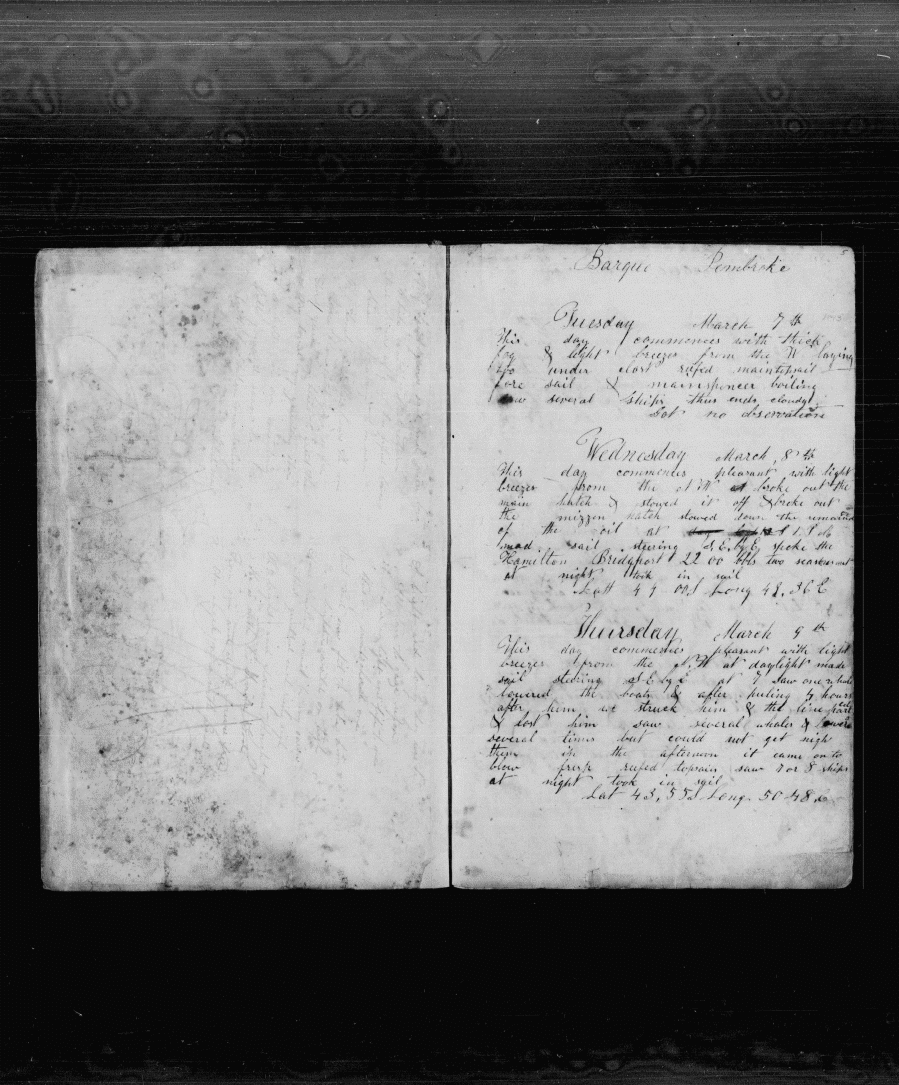 5
Barque Pembroke
Tuesday March 7th
This day commences with thick
fog & light breezes from the W laying
too under clost reefed maintopsail
fore sail & mainspencer boiling
saw several ships thus ends cloudy
Lat no observation
Wednesday March 8th
This day commences pleasant with light
breezes from the N W broke out the
main hatch & stowed it off & broke out
the mizzen hatch stowed down the remaind
of the oil at
mad sail steering S. E. by E. spoke the
Hamilton Bridgport 22 00 bbls two seasons out
at night took in sail
Latt 44 00 S Long 48. 36 E
Thursday March 9th
This day commences pleasant with light
breezes from the N. W at daylight made
sail stering S E by E at 7 Saw one whale
lowered the boats & after puling 4 hours
after him we struck him & the line part
& lost him saw several whales & lowere
several times but could not get nigh
them in the afternoon it came on to
blow fresh reefed topsain saw 7 or 8 ships
at night took in sail
Lat 43, 55 S Long. 50 48 E